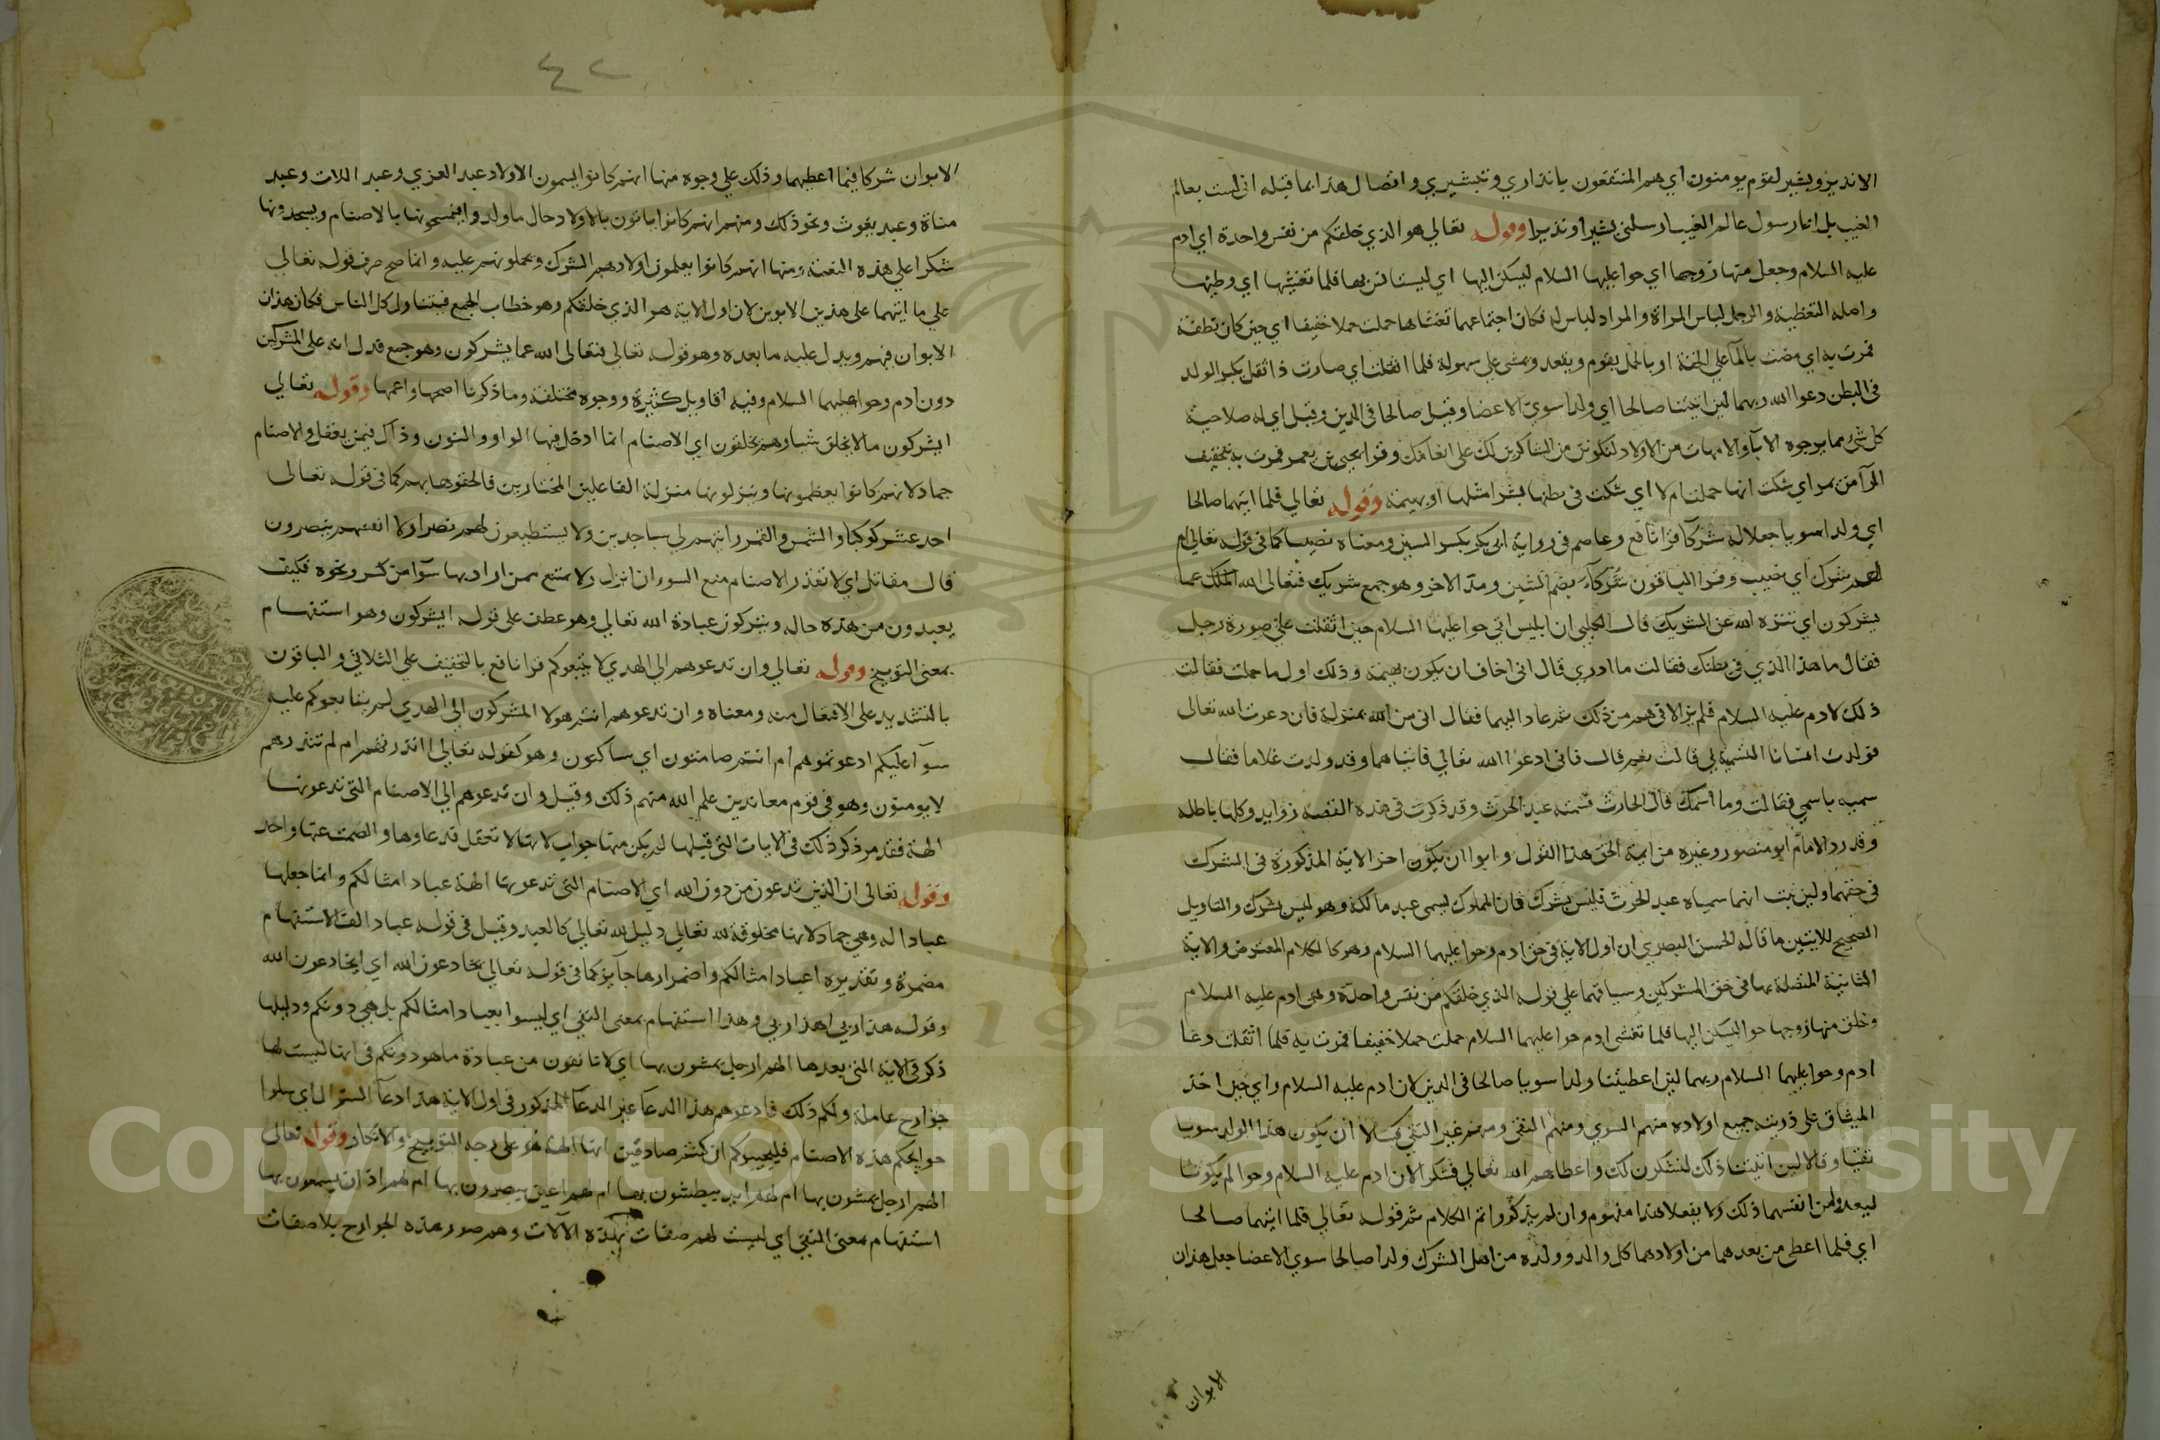 الا نذير وبشير لقوم يومنون اي هم المنتفعون بانذاري وتبشيري واتصال هذا بما قبله اني لست بعالم
الغيب بل انا رسول عالم الغيب ارسلني بشيرا ونذيرا وقوله تعالي هو الذي خلقكم من نفس واحدة اي ادم
عليه السلام وجعل منها زوجها اي حوا عليها السلام ليسكن اليها اي ليستانس بها فلما تغشيها اي وطيها
واصله التغطية والرجل لباس المراة والمراد لباس له فكان اجتماعهما تغشاها حملت حملا خفيفا اي حين كان نطفة
فمرت به اي مضت بالمآ علي الخفة او بالحمل يقوم ويقعد ويمشي علي سهولة فلما اثقلت اي صارت ذا ثقل بكبر الولد
في البطن دعوا الله ربهما لين اتيتنا صالحا اي ولدا سوي الاعضا وقيل صالحا في الدين وقيل اي له صلاحية
كل شيء مما يرجوه الابآ والامهات من الاولاد لنكونن من الشاكرين لك علي انعامك وقرا يحيى بن يعمر فمرت به بتخفيف
الرآ من مراي شكت انها حملت ام لا اي شكت في بطنها بشرا مثلها او بهيمة وقوله تعالي فلما اتيهما صالحا
اي ولدا سويا جعلا له شركآ قرا نافع وعاصم في رواية ابي بكر بكسر الشين ومعناه نصيبا كما في قوله تعالي ام
لهم شرك اي نصيب وقرا الباقون شركآء بضم الشين ومد الاخر وهو جمع شريك فتعالي الله الملك عما
يشركون اي تنزه الله عن الشريك قال الكلبي ان ابليس اتي حوا عليها السلام حين اثقلت علي صورة رجل
فقال ما هذا الذي في بطنك فقالت ما ادري قال اني اخاف ان يكون بهيمة وذلك اول ما حملت فقالت
ذلك لادم عليه السلام فلم يزالا في هم من ذلك ثم عاد اليهما فقال اني من الله بمنزلة فان دعوت الله تعالي
فولدت انسانا اتسميه بي قالت نعم قال فاني ادعوا الله تعالي فاتاهما وقد ولدت غلاما فقال
سميه باسمي فقالت وما اسمك قال الحارث فسمته عبد الحرث وقد ذكرت في هذه القصة زوايد وكلها باطلة
وقد رد الامام ابو منصور وغيره من ايمة الحق هذا القول وابوا ان يكون اخر الاية المذكورة في الشرك
في حقهما ولين ثبت انهما سمياه عبد الحرث فليس بشرك فان المملوك يسمي عبد مالكه وهو ليس بشرك والتاويل
الصحيح للايتين ما قاله الحسن البصري ان اول الاية في حق ادم وحوا عليهما السلام وهو كالكلام المعترض والاية
الثانية المتصلة بها في حق المشركين وسياقهما علي قوله الذي خلقكم من نفس واحدة وهي ادم عليه السلام
وخلق منها زوجها حوا ليسكن اليها فلما تغشي ادم حوا عليهما السلام حملت حملا خفيفا فمرت به فلما اثقلت دعا
ادم وحوا عليهما السلام ربهما لين اعطيتنا ولدا سويا صالحا في الدين لان ادم عليه السلام راي حين اخذ
الميثاق علي ذريته جميع اولاده منهم السوي ومنهم التقي ومنهم غير التقي فسالا ان يكون هذا الولد سويا
تقيا وقالا لين اتيتنا ذلك لنشكرن لك واعطاهم الله تعالي فشكرا لان ادم عليه السلام وحوا لم يكونا
ليعدا من انفسهما ذلك ولا يفعلا هذا مفهوم وان لم يذكر واتم الكلام ثم قوله تعالي فلما اتيهما صالحا
اي فلما اعطي من بعدهما من اولادهما كل والد ووالدة من اهل الشرك ولدا صالحا سوي الاعضا جعل هذان
الابوان
٤٢
الابوان شركا فيما اعطيهما وذلك علي وجوه منها انهم كانوا يسمون الاولاد عبد العزي وعبد اللات وعبد
مناة وعبد يغوث ونحو ذلك ومنهم انهم كانوا ياتون بالاولاد حال ما ولدوا فيمسحونها بالاصنام ويسجدونها
شكرا علي هذه النعمة ومنها انهم كانوا يعلمون اولادهم الشرك ويحملونهم عليه وانما صح صرف قوله تعالي
علي ما اتيهما علي هذين الابوين لان اول الاية هو الذي خلقكم وهو خطاب الجمع فيتناول كل الناس فكان هذان
الابوان فيهم ويدل عليه ما بعده وهو قوله تعالي فتعالي الله عما يشركون وهو جمع فدل انه علي المشركين
دون ادم وحوا عليهما السلام وفيه اقاويل كثيرة ووجوه مختلفة وما ذكرنا اصحها واعمها وقوله تعالي
ايشركون ما لا يخلق شيا وهم يخلقون اي الاصنام انما ادخل فيها الواو والنون وذاك فيمن يعقل والاصنام
جماد لانهم كانوا يعظمونها وينزلونها منزلة الفاعلين المختارين فالحقوها بهم كما في قوله تعالي
احد عشر كوكبا والشمس والقمر رايتهم لي ساجدين ولا يستطيعون لهم نصرا ولا انفسهم ينصرون
قال مقاتل اي لا تقدر الاصنام منع السوء ان انزل ولا تمتنع ممن اراد بها سوآ من كسر ونحوه فكيف
يعبدون من هذه حاله ويتركون عبادة الله تعالي وهو عطف علي قوله ايشركون وهو استفهام
بمعني التوبيخ وقوله تعالي وان تدعوهم الي الهدي لا يتبعوكم قرا نافع بالتخفيف علي الثلاثي والباقون
بالتشديد علي الافتعال منه ومعناه وان تدعوهم انتم هولا المشركون الي الهدي لم يتابعوكم عليه
سوآ عليكم ادعوتموهم ام انتم صامتون اي ساكتون وهو كقوله تعالي اانذرتهم ام لم تنذرهم
لا يومنون وهو في قوم معاندين علم الله منهم ذلك وقيل وان تدعوهم الي الاصنام التي تدعونها
الهة فقد مر ذكر ذلك في الايات التي قبلها لم يكن منها جواب لانها لا تعقل فدعاوها والصمت عنها واحد
وقوله تعالي ان الذين تدعون من دون الله اي الاصنام التي تدعونها الهة عباد امثالكم وانما جعلها
عبادا له وهي جماد لانها مخلوقة لله تعالي دليل لله تعالي كالعبد وقيل في قوله عباد الف الاستفهام
مضمرة وتقديره اعبادا امثالكم واضمارها جايز كما في قوله تعالي يخادعون الله اي ايخادعون الله
وقوله هذا ربي اهذا ربي وهذا استفهام بمعني النفي اي ليسوا بعباد امثالكم بل هي دونكم ودليلها
ذكر في الاية التي بعدها الهم ارجل يمشون بها اي لا تانفون من عبادة ما هو دونكم في انها ليست لها
جوارح عاملة ولكم ذلك فادعوهم هذا الدعا غير الدعآ المذكور في اول الاية هذا دعآ السوال اي سلوا
حوايجكم هذه الاصنام فليجيبوكم ان كنتم صادقين انها الهة هو علي وجه التوبيخ والانكار وقوله تعالي
الهم ارجل يمشون بها ام لهم ايد يبطشون بها ام لهم اعين يبصرون بها ام لهم اذان يسمعون بها
استفهام بمعني النفي اي ليست لهم صفات بهذه الآلات وهم صور هذه الجوارح بلا صفات
Copyright © King Saud University
1957